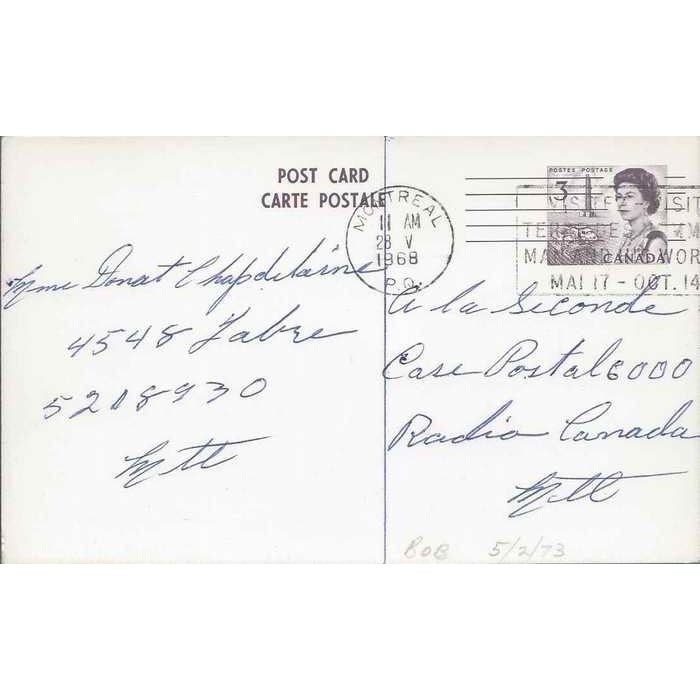 POST CARD
CARTE POSTALE
MONTREAL
11 AM
28 V
1968
P.Q.
POSTES POSTAGE
3
CANADA
VISITEZ VISIT
TERRE DES
MAN AND WOR
MAI 17 - OCT. 14
Mme Donat Chapdelaine
4548 Fabre
5218930
Mtl
A la Seconde
Case Postal 6000
Radio Canada
Mtl
BOB 5/2/73